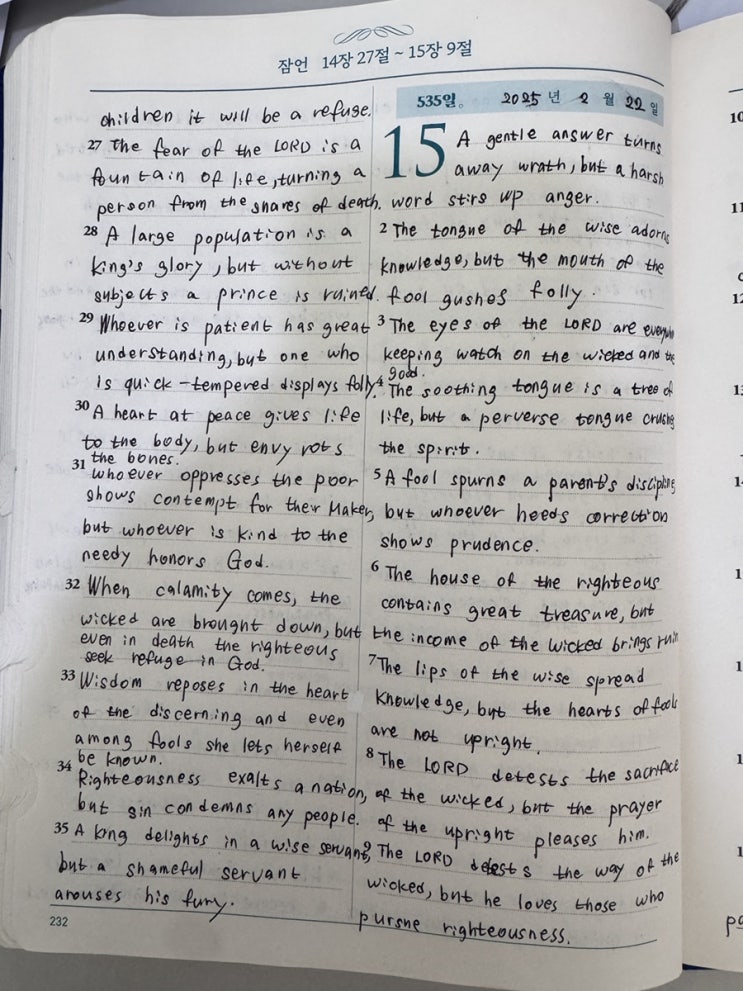 잠언 14장 27절 ~ 15장 9절
children it will be a refuge.
27 The fear of the LORD is a
fountain of life, turning a
person from the snares of death.
28 A large population is a
king's glory, but without
subjects a prince is ruined.
29 Whoever is patient has great
understanding, but one who
is quick-tempered displays folly.
30 A heart at peace gives life
to the body, but envy rots
the bones.
31 whoever oppresses the poor
shows contempt for their Maker,
but whoever is kind to the
needy honors God.
32 When calamity comes, the
wicked are brought down, but
even in death the righteous
seek refuge in God.
33 Wisdom reposes in the heart
of the discerning and even
among fools she lets herself
be known.
34 Righteousness exalts a nation,
but sin condemns any people.
35 A king delights in a wise servant,
but a shameful servant
arouses his fury.
232
535일。 2025 년 2 월 22 일
15 A gentle answer turns
away wrath, but a harsh
word stirs up anger.
2 The tongue of the wise adorns
knowledge, but the mouth of the
fool gushes folly.
3 The eyes of the LORD are
keeping watch on the wicked and the
good.
4 The soothing tongue is a tree of
life, but a perverse tongue
the spirit.
5 A fool spurns a parent's discipline
but whoever heeds correction
shows prudence.
6 The house of the righteous
contains great treasure, but
the income of the wicked brings ruin
7 The lips of the wise spread
knowledge, but the hearts of fools
are not upright.
8 The LORD detests the sacrifice
of the wicked, but the prayer
of the upright pleases him.
9 The LORD detests the way of the
wicked, but he loves those who
pursue righteousness.
10
11
12
13